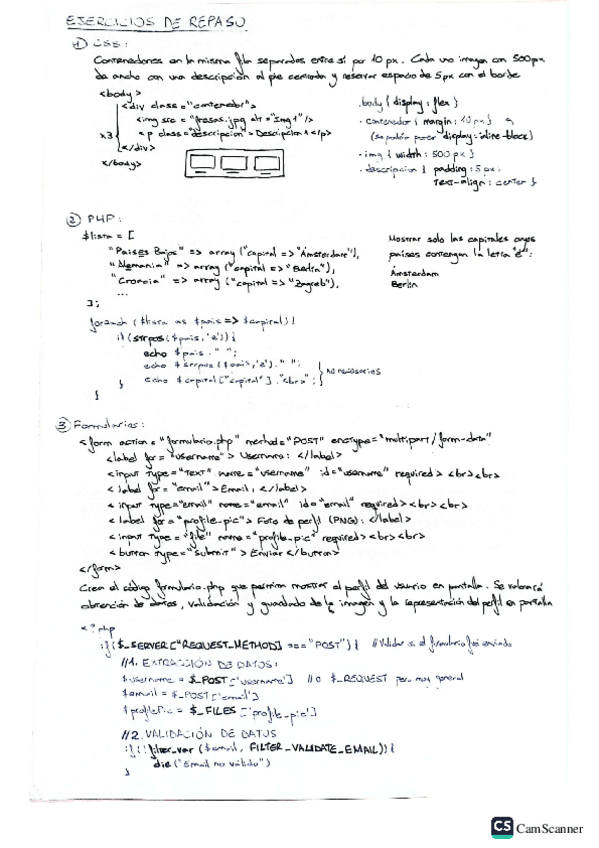 EJERCICIOS DE REPASO
① CSS:
Contenedores en la misma fila separados entre sí por 10 px. Cada uno imagen con 500px
de ancho con una descripción al pie centrada y reservar espacio de 5px con el borde
<body>
<div class="contenedor">
<img src="fresas.jpg alt="Img1"/>
x3
<p class="descripcion"=Descripcion1</p>
</div>
</body>
.body { display: flex }
.contenedor { margin: 10px }
(se podría poner display: inline-block)
.img { width: 500 px }
.descripcion { padding: 5px;
text-align: center }
② PHP:
$lista = [
"Paises Bajos" => array ("capital => "Ámsterdam"),
"Alemania" => array ("capital => "Berlín"),
"Croacia" => array ("capital => "Zagreb"),
...
];
Mostrar solo las capitales cuyos
países contengan la letra "e":
Ámsterdam
Berlín
foreach ($lista as $pais => $capital) {
if (strpos($pais, 'e')) {
echo $pais . " ";
echo $strpos ($pais, 'e') . " ";
echo $capital ["capital"] . "<br>";
no necesarios
}
}
③ Formularios:
<form action="formulario.php" method="POST" enctype="multipart/form-data"
<label for="username"> Username: </label>
<input type="text" name="username" id="username" required> <br><br>
<label for="email">Email: </label>
<input type="email" name="email" id="email" required> <br><br>
<label for="profile_pic"> Foto de perfil (PNG): </label>
<input type="file" name="profile_pic" required> <br><br>
<button type="submit"> Enviar </button>
</form>
Crea el código formulario.php que permita mostrar el perfil del usuario en pantalla. Se valorará
obtención de datos, validación y guardado de la imagen y la representación del perfil en pantalla
<?php
if ($_SERVER["REQUEST_METHOD] === "POST") { //Validar si el formulario fue enviado
//1. EXTRACCIÓN DE DATOS:
$username = $_POST['username'] // o $_REQUEST para muy general
$email = $_POST['email']
$profilePic = $_FILES ['profile_pic']
//2. VALIDACIÓN DE DATOS
if (!filter_var ($email, FILTER_VALIDATE_EMAIL)) {
die ("Email no válido")
}
CS CamScanner